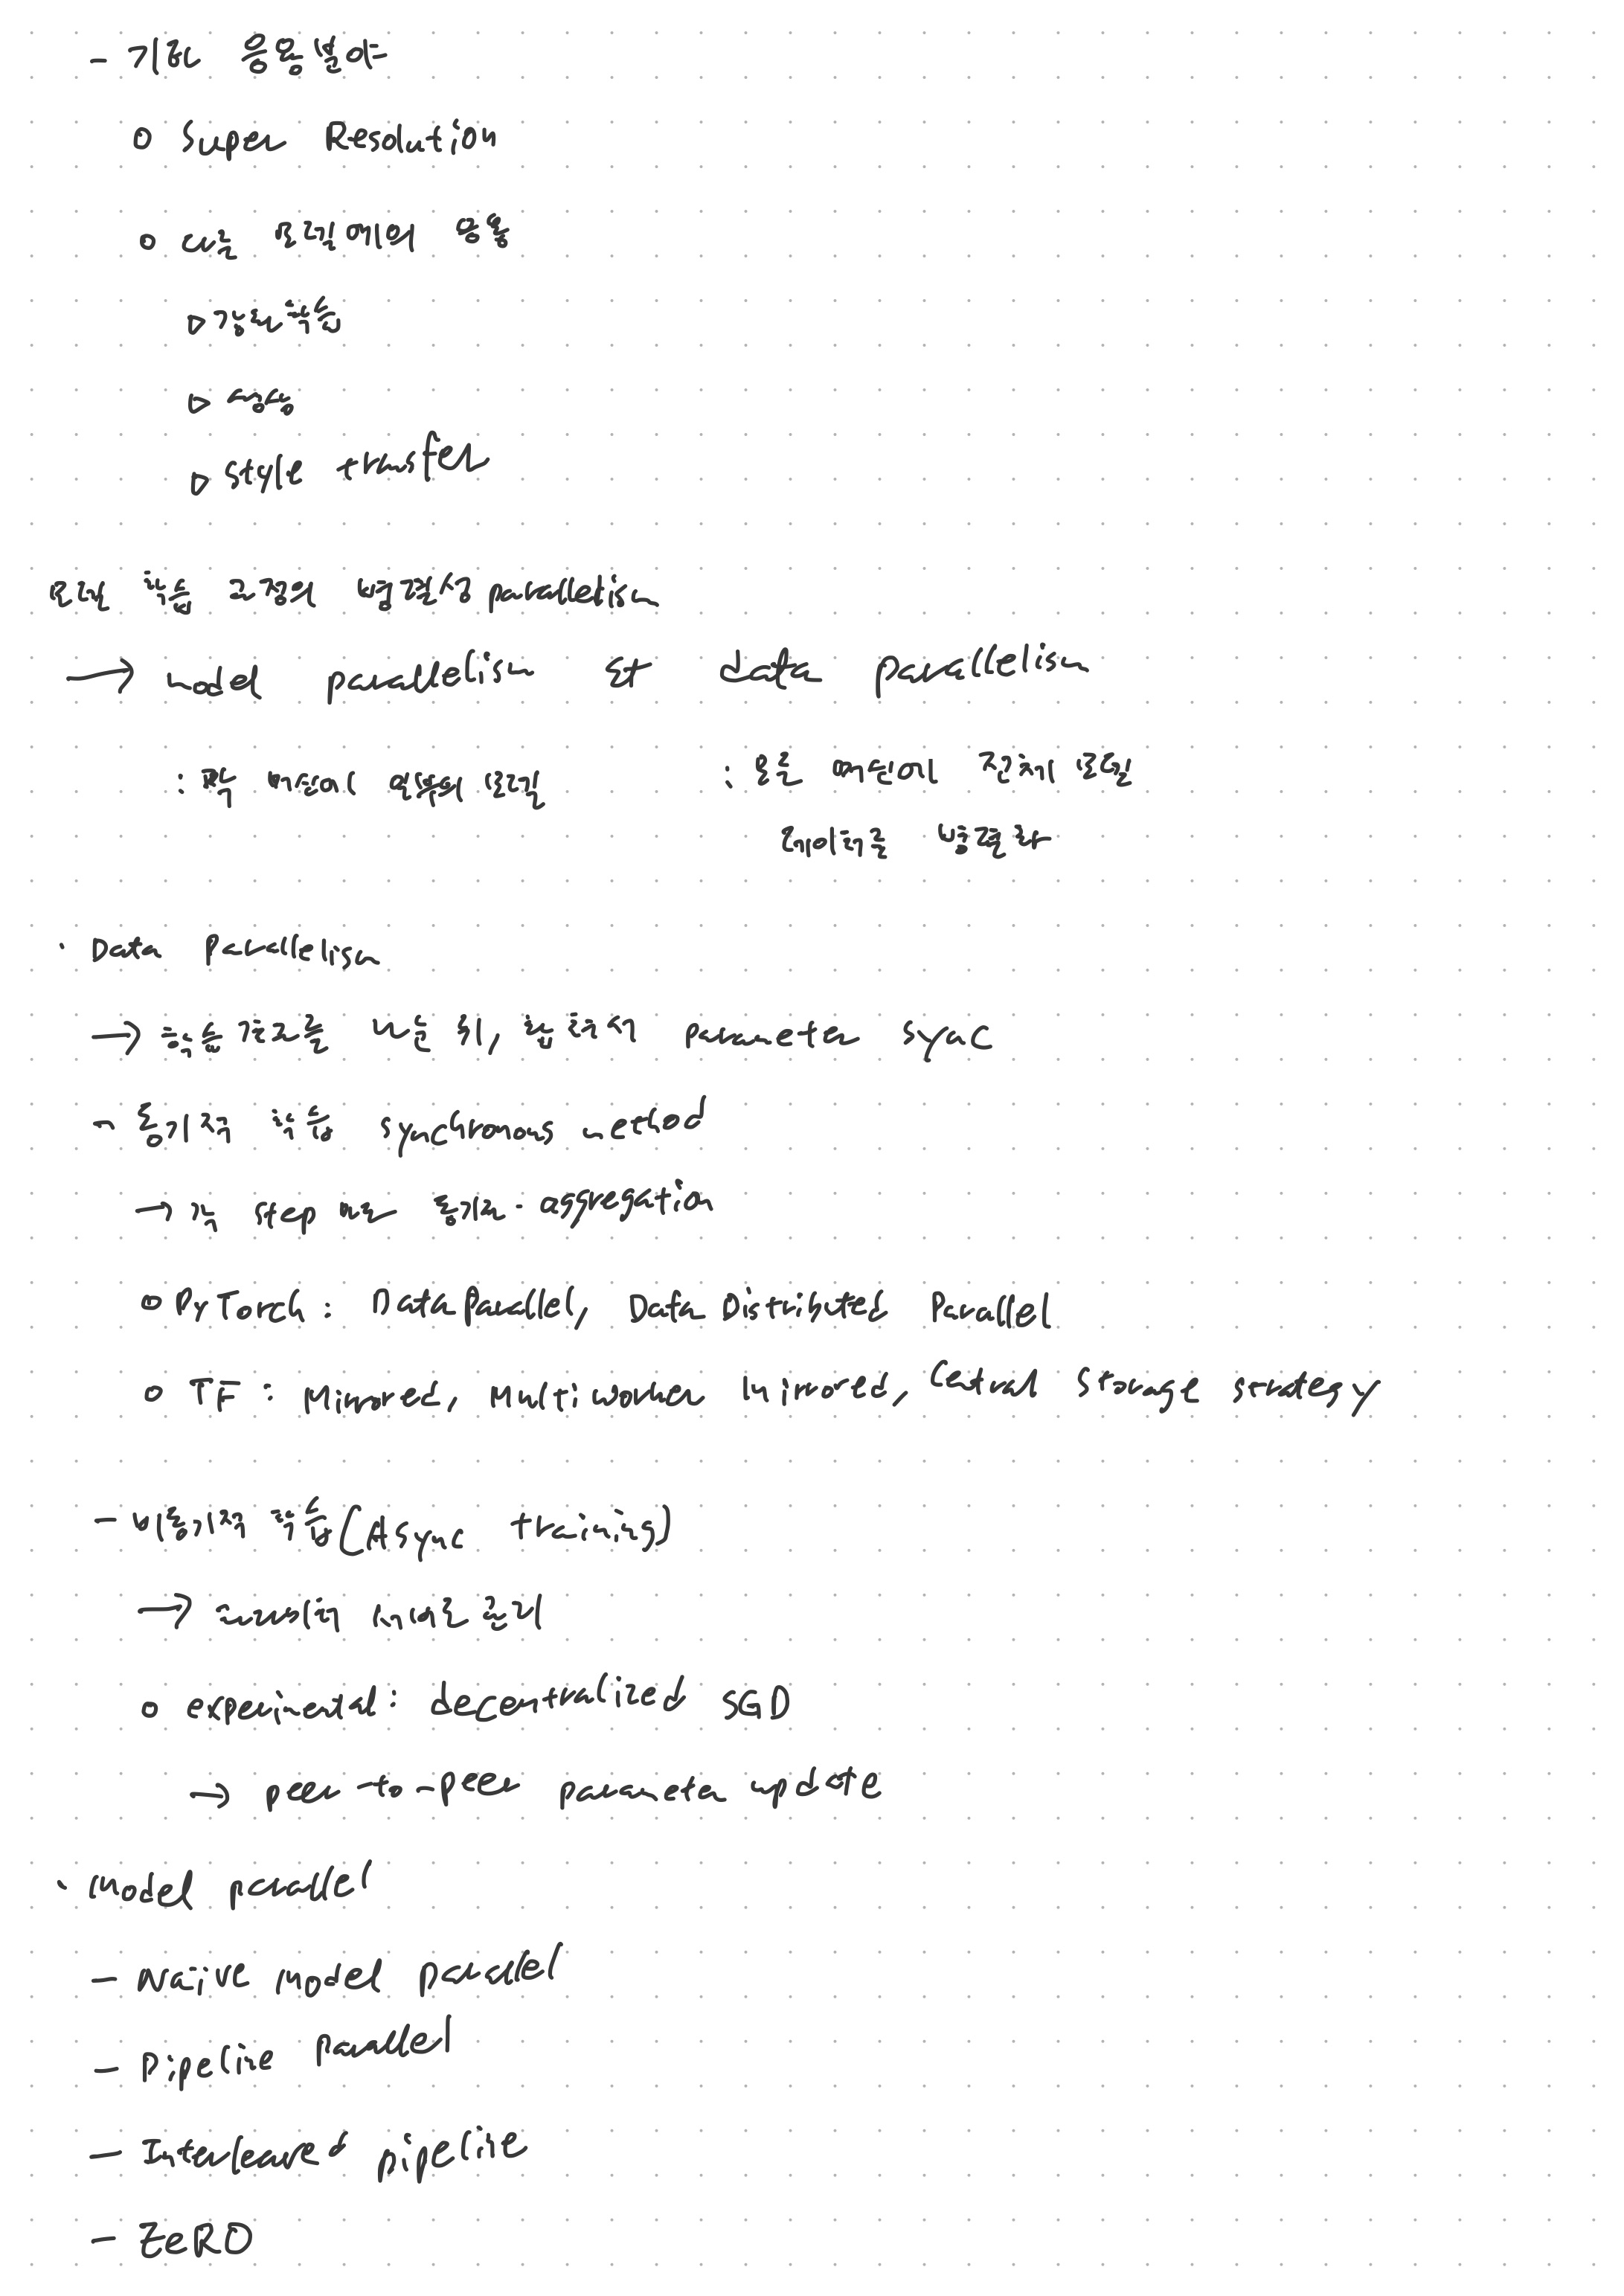 - 기타 응용 분야
o Super Resolution
o 다른 모델에의 응용
▷ 강화학습
▷ 생성
▷ style transfer
모델 학습 과정의 병렬성 parallelism
→ model parallelism data parallelism
: 각 머신에 일부의 모델 : 모든 머신에 전체 모델
데이터를 병렬화
· Data Parallelism
→ 학습 결과를 나눈 뒤, 합쳐서 parameter sync
- 동기적 학습 synchronous method
→ 각 step 마다 동기화 - aggregation
o PyTorch : DataParallel, Data Distributed Parallel
o TF : Mirrored, Multi worker mirrored, Central Storage strategy
- 비동기적 학습 (Async training)
→ 파라미터 서버로 관리
o experimental : decentralized SGD
→ peer-to-peer parameter update
· model parallel
- Naïve model parallel
- Pipeline parallel
- Interleaved pipeline
- ZeRO